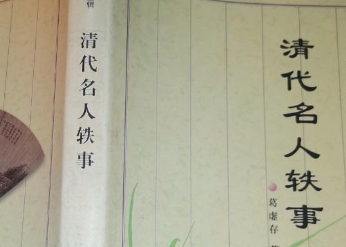 辑
清代名人轶事
清代名人轶事
葛虚存